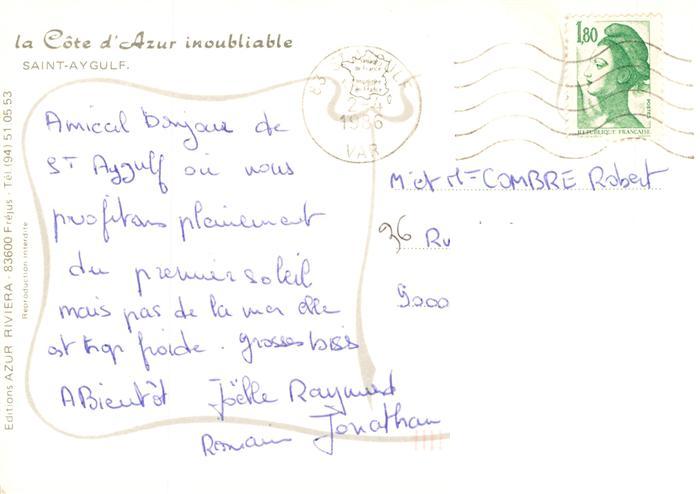 la Côte d'Azur inoubliable
SAINT-AYGULF.
Amical bonjour de
ST Aygulf où nous
profitons pleinement
du premier soleil
mais pas de la mer elle
est trop froide. grosses biss
A Bientôt Joëlle Raymond
Romain Jonathan
Editions AZUR RIVIERA - 83600 Fréjus - Tél. (94) 51 05 53
Reproduction interdite
83 ST AYGULF
1986
VAR
1,80
POSTES
REPUBLIQUE FRANÇAISE
M et Mme COMBRE Robert
36 Ru